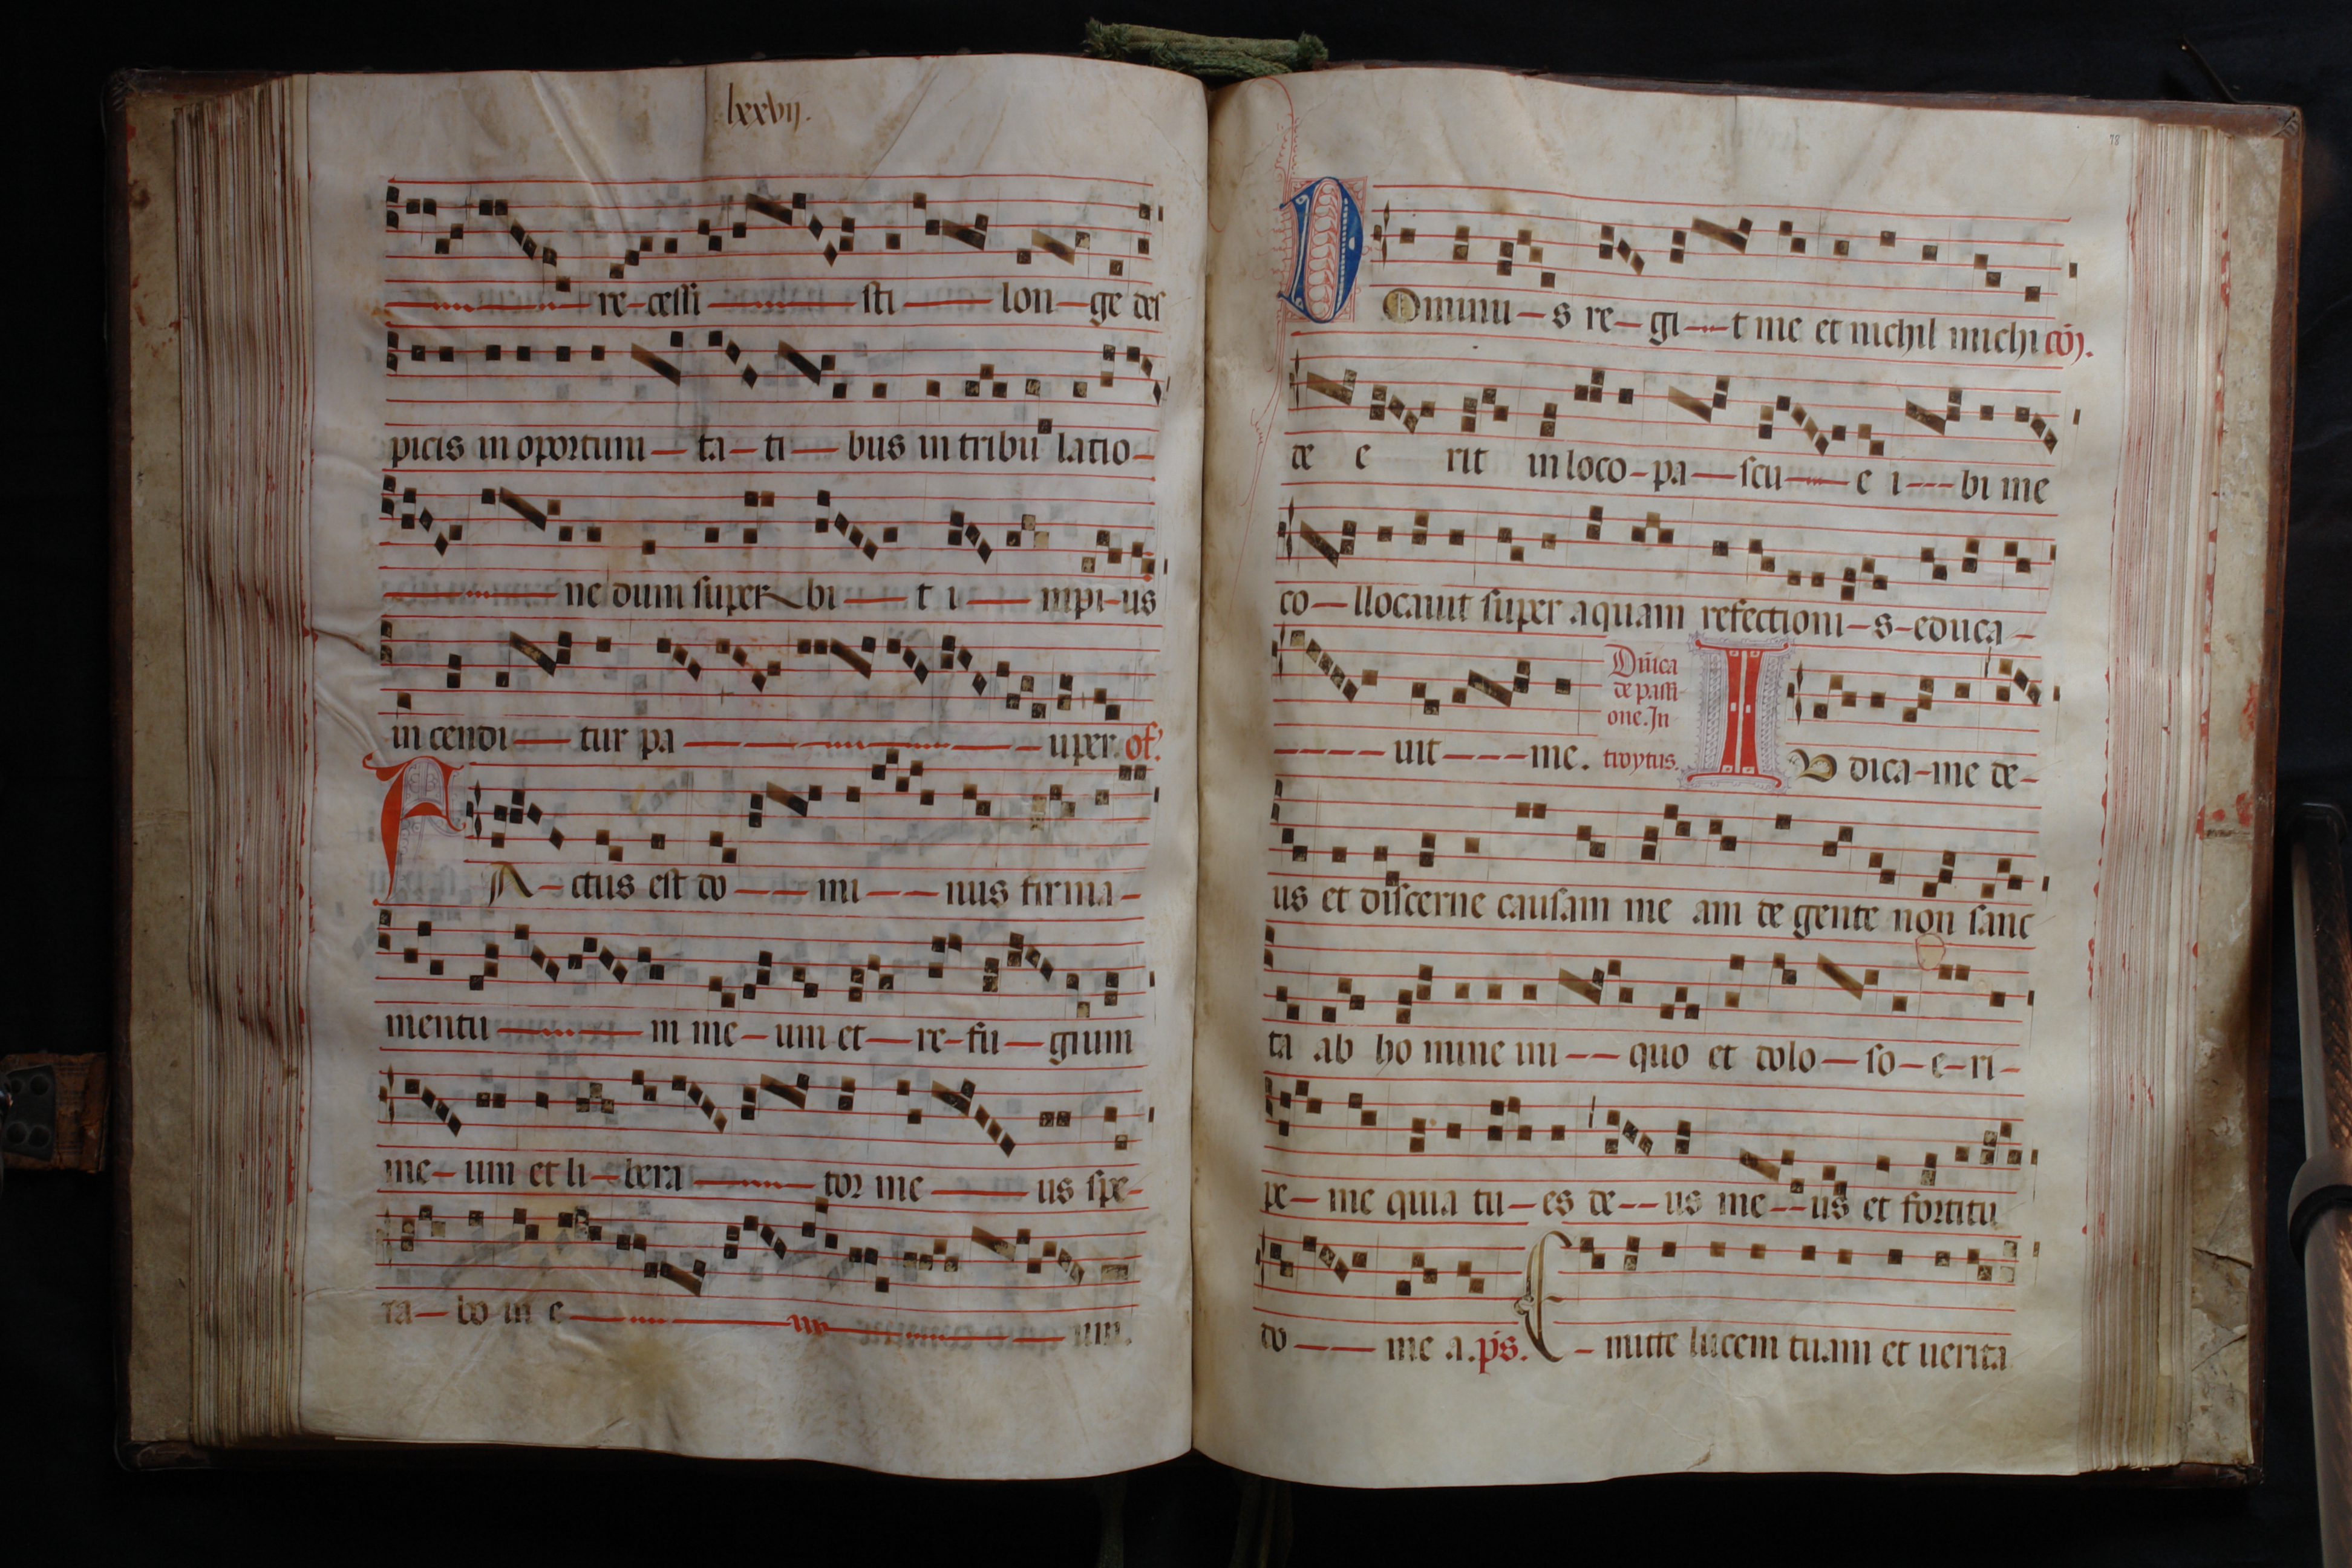 lxxvij.
re-cessi sti lon-ge des
picis in oportuni-ta-ti-bus in tribu latio-
ne dum super-bi-t i-mpi-us
in cendi-tur pa-uper. of.
A-ctus est do-mi-nus firma-
mentu-m me-um et-re-fu-gium
me-um et li-bera-tor me-us spe-
ra-bo in e-um.
78
Dominu-s re-gi-t me et nichil michi cō.
de e rit in loco-pa-scu-e i-bi me
co-llocauit super aquam refectioni-s-educa-
uit-me. Dñica
de passi
one. In
troytus. IV dica-me de-
us et discerne causam me am de gente non sanc
ta ab ho mine ini-quo et dolo-so-e-ri-
pe-me quia tu-es de-us me-us et fortitu
do-me a. ps. E-mitte lucem tuam et uerita